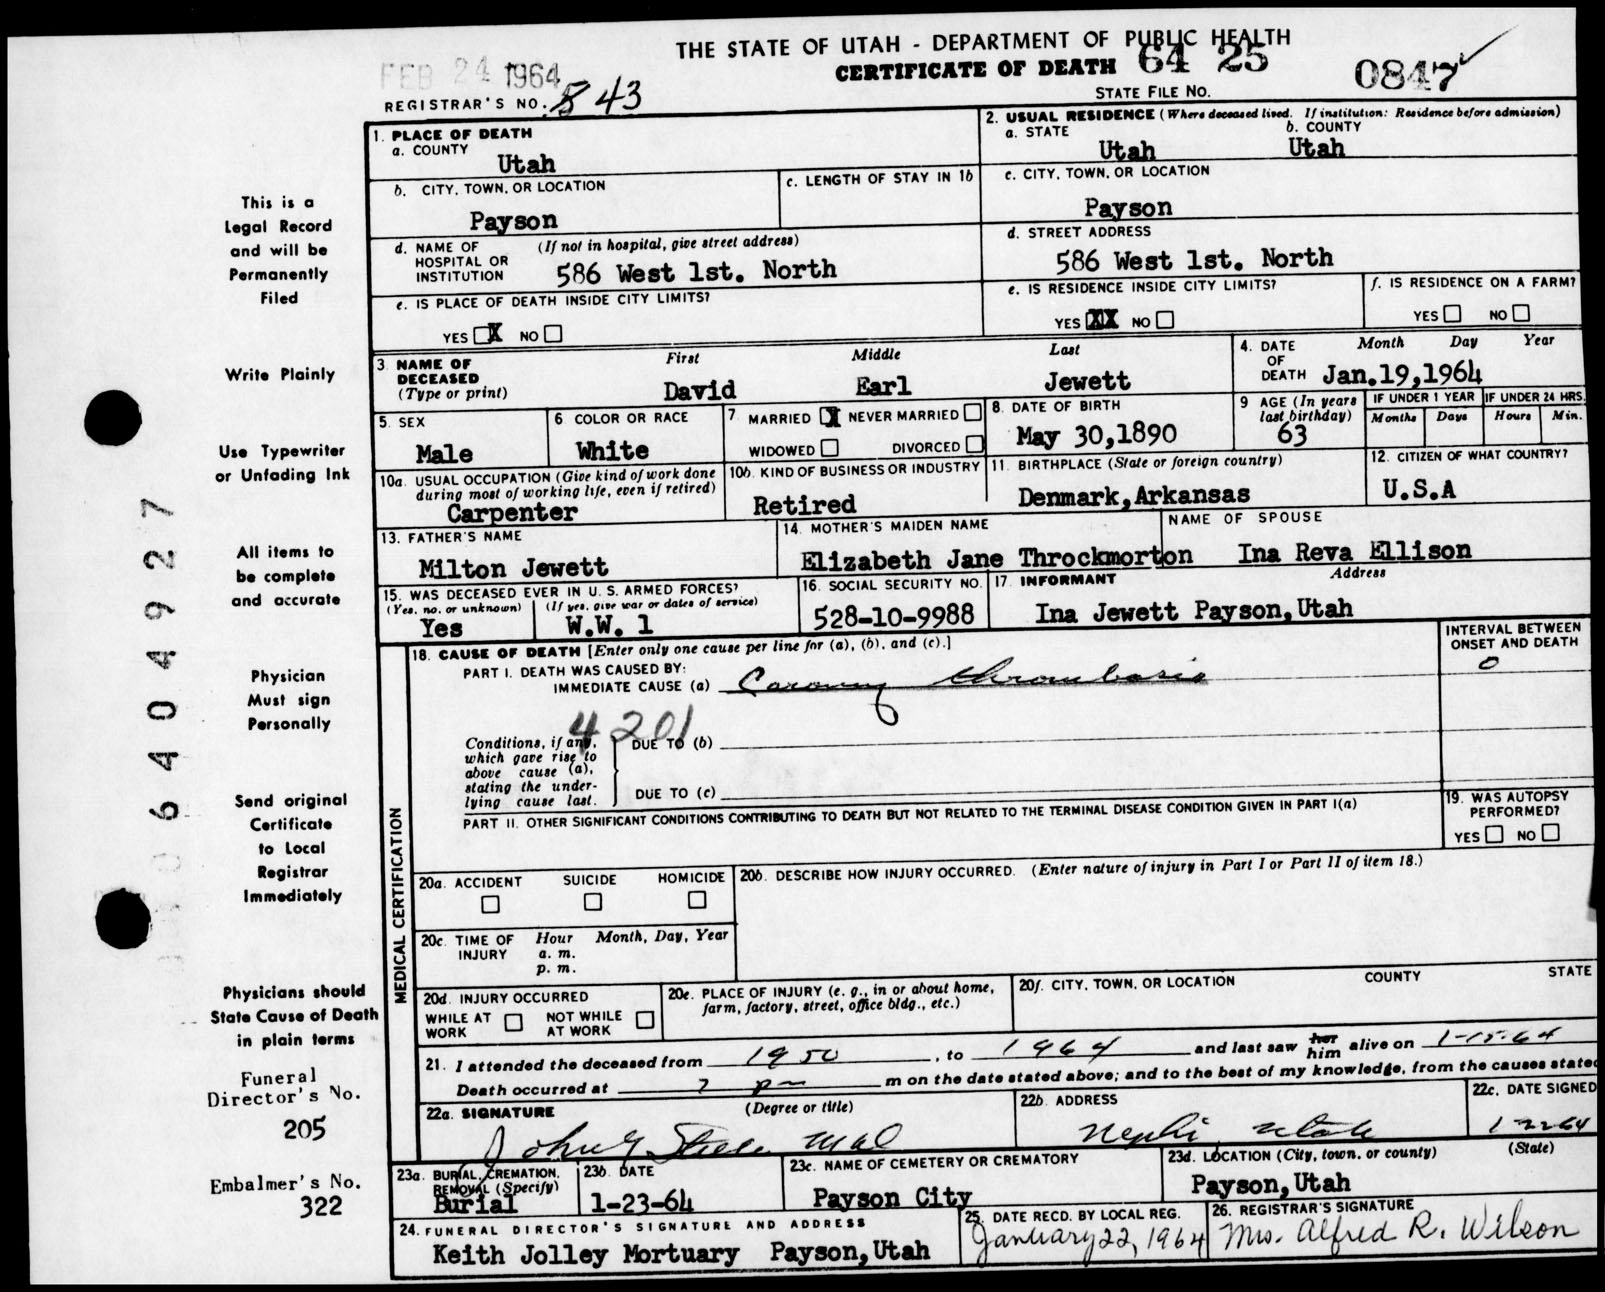 THE STATE OF UTAH - DEPARTMENT OF PUBLIC HEALTH
CERTIFICATE OF DEATH 64 25 0847
STATE FILE NO.
FEB 24 1964
REGISTRAR'S NO. 843
1. PLACE OF DEATH
a. COUNTY
Utah
2. USUAL RESIDENCE (Where deceased lived. If institution: Residence before admission)
a. STATE b. COUNTY
Utah Utah
b. CITY, TOWN, OR LOCATION
Payson
c. LENGTH OF STAY IN 1b
c. CITY, TOWN, OR LOCATION
Payson
d. NAME OF HOSPITAL OR INSTITUTION (If not in hospital, give street address)
586 West 1st. North
d. STREET ADDRESS
586 West 1st. North
e. IS PLACE OF DEATH INSIDE CITY LIMITS?
YES X NO
e. IS RESIDENCE INSIDE CITY LIMITS?
YES XX NO
f. IS RESIDENCE ON A FARM?
YES NO
3. NAME OF DECEASED (Type or print)
First Middle Last
David Earl Jewett
4. DATE OF DEATH Month Day Year
Jan.19,1964
5. SEX
Male
6 COLOR OR RACE
White
7. MARRIED X NEVER MARRIED
WIDOWED DIVORCED
8. DATE OF BIRTH
May 30,1890
9 AGE (In years last birthday)
63
IF UNDER 1 YEAR IF UNDER 24 HRS.
Months Days Hours Min.
10a. USUAL OCCUPATION (Give kind of work done during most of working life, even if retired)
Carpenter
10b. KIND OF BUSINESS OR INDUSTRY
Retired
11. BIRTHPLACE (State or foreign country)
Denmark,Arkansas
12. CITIZEN OF WHAT COUNTRY?
U.S.A
13. FATHER'S NAME
Milton Jewett
14. MOTHER'S MAIDEN NAME
Elizabeth Jane Throckmorton
NAME OF SPOUSE
Ina Reva Ellison
15. WAS DECEASED EVER IN U. S. ARMED FORCES?
(Yes, no, or unknown) (If yes, give war or dates of service)
Yes W.W. 1
16. SOCIAL SECURITY NO.
528-10-9988
17. INFORMANT Address
Ina Jewett Payson,Utah
MEDICAL CERTIFICATION
18. CAUSE OF DEATH [Enter only one cause per line for (a), (b), and (c).]
INTERVAL BETWEEN ONSET AND DEATH
PART I. DEATH WAS CAUSED BY:
IMMEDIATE CAUSE (a) Coronary thrombosis
0
4201
Conditions, if any, which gave rise to above cause (a), stating the underlying cause last.
DUE TO (b)
DUE TO (c)
PART II. OTHER SIGNIFICANT CONDITIONS CONTRIBUTING TO DEATH BUT NOT RELATED TO THE TERMINAL DISEASE CONDITION GIVEN IN PART I(a)
19. WAS AUTOPSY PERFORMED?
YES NO
20a. ACCIDENT SUICIDE HOMICIDE
20b. DESCRIBE HOW INJURY OCCURRED. (Enter nature of injury in Part I or Part II of item 18.)
20c. TIME OF INJURY Hour Month, Day, Year
a. m.
p. m.
20d. INJURY OCCURRED
WHILE AT WORK NOT WHILE AT WORK
20e. PLACE OF INJURY (e. g., in or about home, farm, factory, street, office bldg., etc.)
20f. CITY, TOWN, OR LOCATION COUNTY STATE
21. I attended the deceased from 1950, to 1964 and last saw her him alive on 1-15-64
Death occurred at 7 pm m on the date stated above; and to the best of my knowledge, from the causes stated
22a. SIGNATURE (Degree or title)
John G Steele
22b. ADDRESS
Nephi Utah
22c. DATE SIGNED
1-22-64
23a. BURIAL, CREMATION, REMOVAL (Specify)
Burial
23b. DATE
1-23-64
23c. NAME OF CEMETERY OR CREMATORY
Payson City
23d. LOCATION (City, town, or county) (State)
Payson,Utah
24. FUNERAL DIRECTOR'S SIGNATURE AND ADDRESS
Keith Jolley Mortuary Payson,Utah
25. DATE RECD. BY LOCAL REG.
January 22, 1964
26. REGISTRAR'S SIGNATURE
Mrs. Alfred R. Wilson
This is a
Legal Record
and will be
Permanently
Filed
Write Plainly
Use Typewriter
or Unfading Ink
All items to
be complete
and accurate
Physician
Must sign
Personally
Send original
Certificate
to Local
Registrar
Immediately
Physicians should
State Cause of Death
in plain terms
Funeral
Director's No.
205
Embalmer's No.
322
64 04927